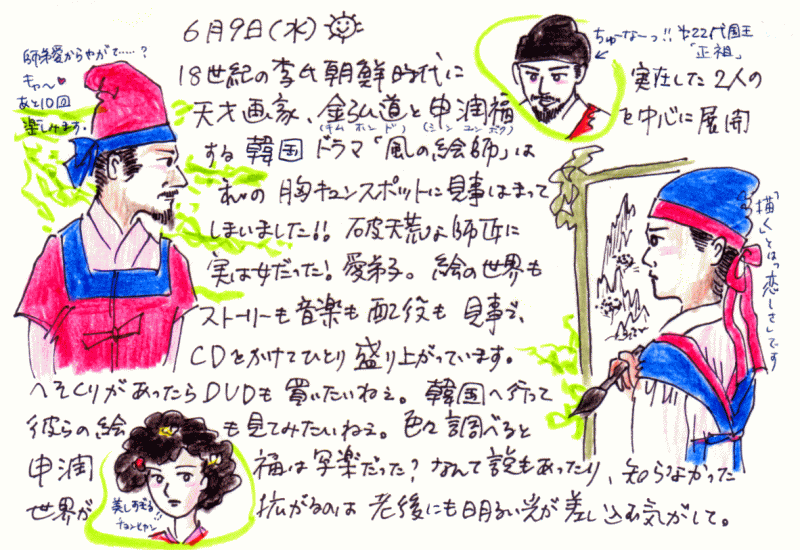 6月9日(水)
18世紀の李氏朝鮮時代に
実在した2人の
天才画家、金弘道と申潤福
を中心に展開
(キム ホンド) (シン ユンボク)
する韓国ドラマ「風の絵師」は
私の胸キュンスポットに見事はまって
しまいました!! 破天荒な師匠に
実は女だった!愛弟子。絵の世界も
ストーリーも音楽も配役も見事で、
CDをかけてひとり盛り上がっています。
へそくりがあったらDVDも買いたいねぇ。韓国へ行って
彼らの絵も見てみたいねぇ。色々調べると
申潤福は写楽だった?なんて説もあったり、知らなかった
世界が拡がるのは老後にも明るい光が差し込む気がして。
師弟愛からやがて……?
キャ〜♥
あと10回
楽しみます。
ちゅーなーっ!!
第22代国王
「正祖」
「描くとはっ 恋しさ」です
美しすぎる!!
チョンヒャン